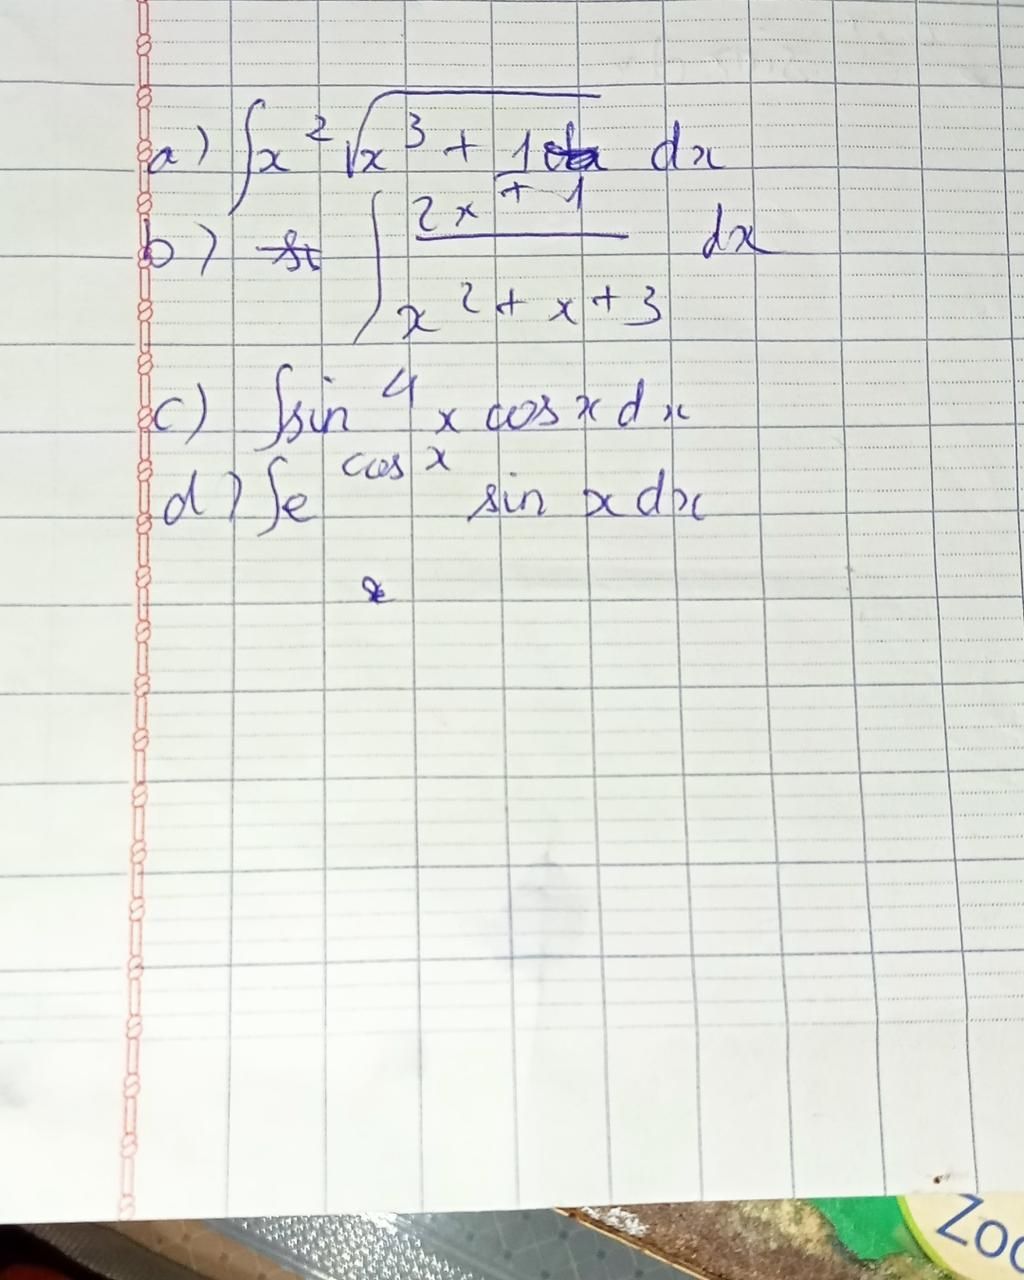 a) ∫x²√(x³ + 1) dx
b) ∫ (2x + 1)/(x² + x + 3) dx
c) ∫sin⁴ x cos x dx
d) ∫e^(cos x) sin x dx
Zoo